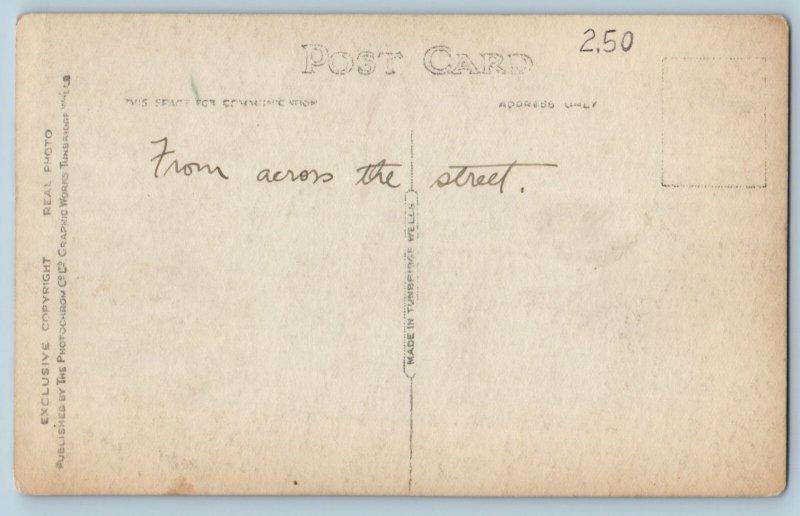 POST CARD
2.50
THIS SPACE FOR COMMUNICATION
ADDRESS ONLY
From across the street.
MADE IN TUNBRIDGE WELLS
EXCLUSIVE COPYRIGHT REAL PHOTO
PUBLISHED BY THE PHOTOCHROM Co LTD GRAPHIC WORKS TUNBRIDGE WELLS